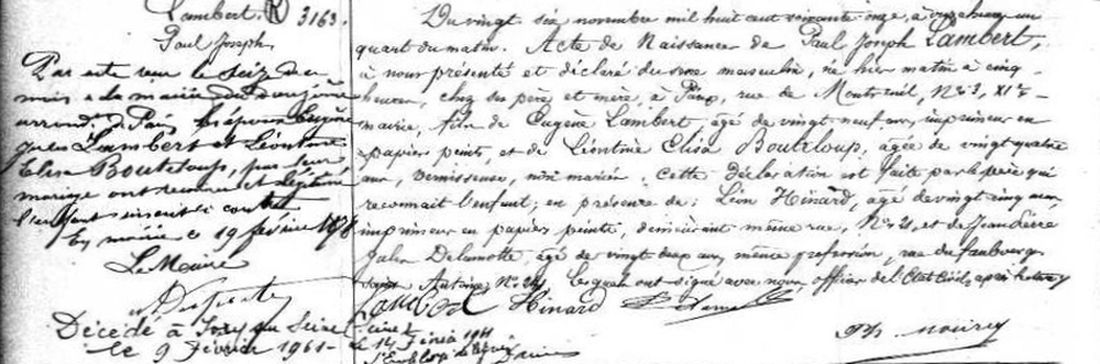 Lambert. R 3163.
Paul Joseph
Par acte reçu le seize de ce
mois à la mairie du douzième
arrondt de Paris les époux Eugène
Jules Lambert et Léontine
Elisa Bouteloup, par leur
mariage ont reconnu et légitimé
l'enfant inscrit ci contre
En mairie le 19 février 1878
Le Maire
Décédé à Ivry sur Seine
le 9 Février 1961-
Seine
le 14 Février 1961
Du vingt six novembre mil huit cent soixante onze, à onze heures un
quart du matin. Acte de Naissance de Paul Joseph Lambert,
à nous présenté et déclaré du sexe masculin, né hier matin à cinq
heures, chez ses père et mère, à Paris, rue de Montreuil, No 3, XIe
mairie, fils de Eugène Lambert, âgé de vingt neuf ans, imprimeur en
papiers peints, et de Léontine Elisa Bouteloup, âgée de vingt quatre
ans, vernisseuse, non mariés. Cette déclaration est faite par le père qui
reconnait l'enfant; en présence de: Léon Hinard, âgé de vingt cinq ans,
imprimeur en papiers peints, demeurant même rue, No 21, et de Jean Pierre
Jules Delamotte, âgé de vingt deux ans, même profession, rue du faubourg
saint Antoine, No Lesquels ont signé avec nous, officier de l'Etat Civil, après lecture
Lambert Hinard